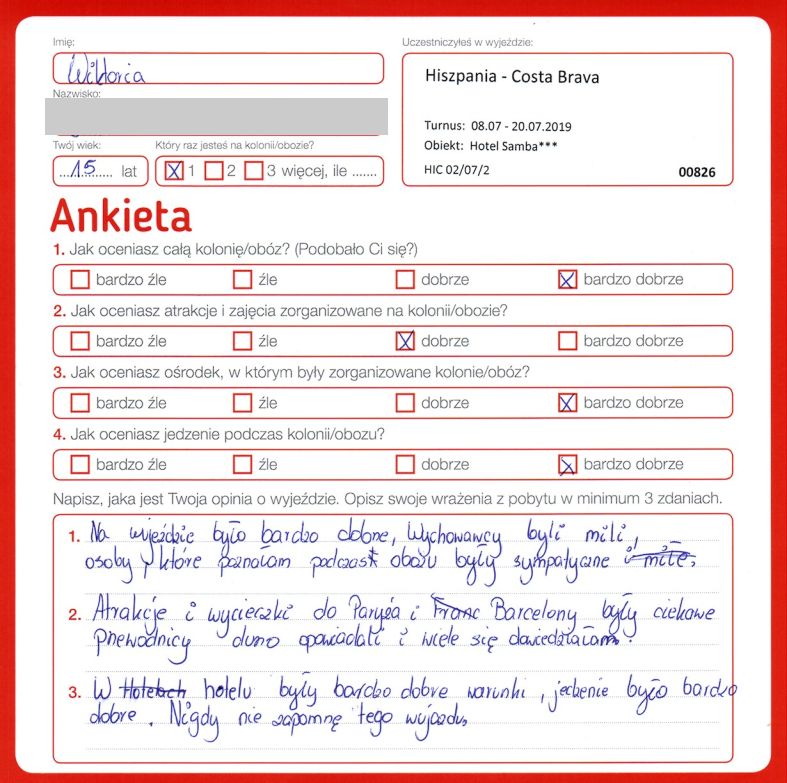 Imię:
Wiktoria
Nazwisko:
Twój wiek:
15 lat
Który raz jesteś na kolonii/obozie?
1 2 3 więcej, ile .......
Uczestniczyłeś w wyjeździe:
Hiszpania - Costa Brava
Turnus: 08.07 - 20.07.2019
Obiekt: Hotel Samba***
HIC 02/07/2 00826
Ankieta
1. Jak oceniasz całą kolonię/obóz? (Podobało Ci się?)
bardzo źle źle dobrze bardzo dobrze
2. Jak oceniasz atrakcje i zajęcia zorganizowane na kolonii/obozie?
bardzo źle źle dobrze bardzo dobrze
3. Jak oceniasz ośrodek, w którym były zorganizowane kolonie/obóz?
bardzo źle źle dobrze bardzo dobrze
4. Jak oceniasz jedzenie podczas kolonii/obozu?
bardzo źle źle dobrze bardzo dobrze
Napisz, jaka jest Twoja opinia o wyjeździe. Opisz swoje wrażenia z pobytu w minimum 3 zdaniach.
1. Na wyjeździe było bardzo dobrze, Wychowawcy byli mili,
osoby, które poznałam podczas obozu były sympatyczne i miłe.
2. Atrakcje i wycieczki do Paryża i Franc Barcelony były ciekawe
przewodnicy dużo opowiadali i wiele się dowiedziałam.
3. W Hotelach hotelu były bardzo dobre warunki, jedzenie było bardzo
dobre. Nigdy nie zapomnę tego wyjazdu.